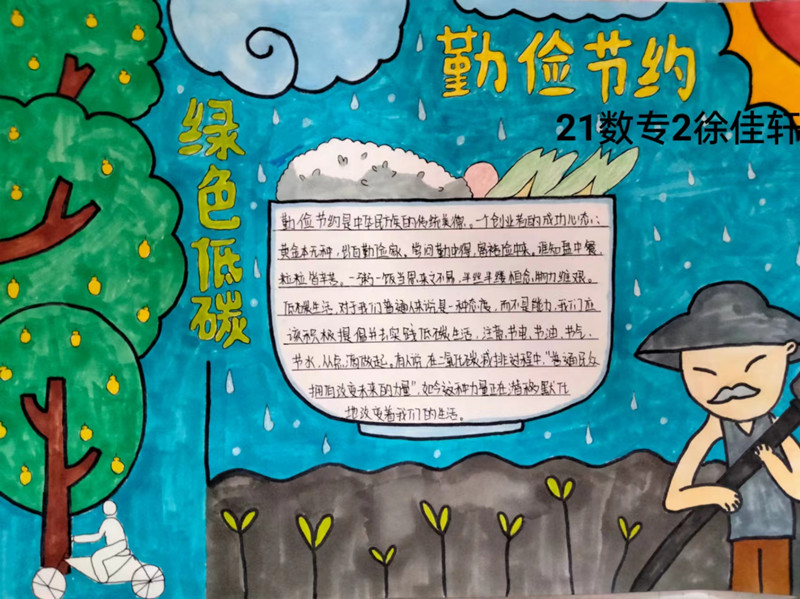 勤俭节约
21数专2徐佳轩
绿色低碳
勤俭节约是中华民族的传统美德。一个创业者的成功心态:
黄金本无种,出自勤俭家。学问勤中得,富裕俭中来。谁知盘中餐,
粒粒皆辛苦。一粥一饭当思来之不易,半丝半缕恒念物力维艰。
低碳生活,对于我们普通人来说是一种态度,而不是能力,我们应
该积极提倡并去实践低碳生活,注意节电、节油、节气、
节水,从点滴做起。有人说,在二氧化碳减排过程中,“普通民众
拥有改变未来的力量”,如今这种力量正在潜移默化
地改变着我们的生活。